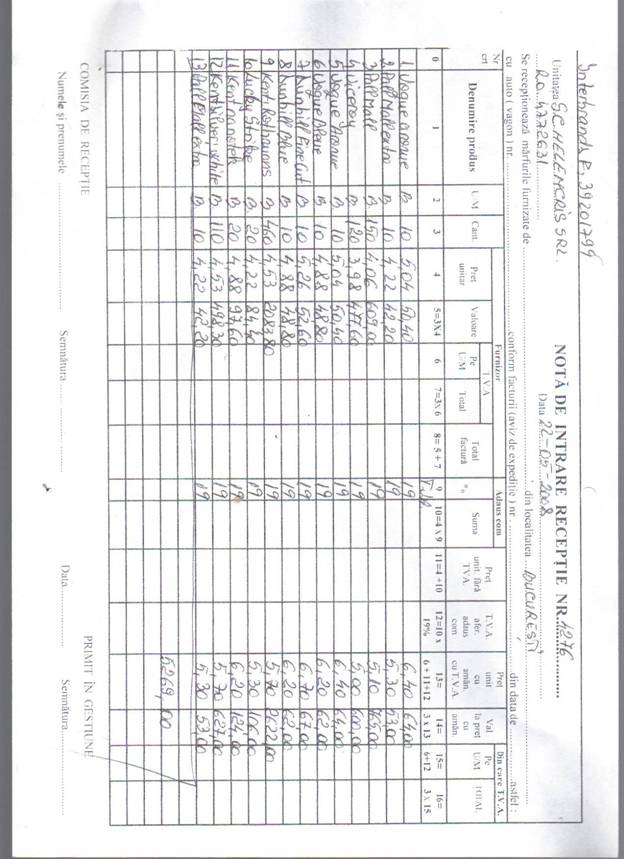 Interbrands F. 39201799
Unitatea S.C. HELEMCRIS SRL. NOTĂ DE INTRARE RECEPȚIE NR. 4276
RO 4772631 Data 22-05-2008
Se recepționează mărfurile furnizate de din localitatea BUCUREȘTI din data de
cu auto ( vagon ) nr. conform facturii (aviz de expediție ) nr . astfel :
Nr crt Denumire produs U/M Cant. Furnizor Adaus com Preț unit. fără T.V.A. T.V.A afer. adaus com Preț unit cu amăn. cu T.V.A. Val la preț cu amăn. Din care T.V.A.
Preț unitar Valoare T.V.A Total factură % Suma Pe U/M TOTAL
Pe U/M Total
0 1 2 3 4 5=3X4 6 7=3x6 8= 5+7 9 10=4x9 11=4+10 12=10x 19% 13= 6+11+12 14= 3x13 15= 6+12 16= 3x15
1 Vogue Arome B 10 5,04 50,40 19 6,40 64,00
2 Pall Mall extra B 10 4,22 42,20 19 5,30 53,00
3 Pall Mall B 150 4,06 609,00 19 5,10 765,00
4 Viceroy B 120 3,98 477,60 19 5,00 600,00
5 Vogue Arome B 10 5,04 50,40 19 6,40 64,00
6 Vogue Bleue B 10 4,88 48,80 19 6,20 62,00
7 Dunhill Fine Cut B 10 5,26 52,60 19 6,70 67,00
8 Dunhill Blue B 10 4,88 48,80 19 6,20 62,00
9 Kent B 460 4,53 2083,80 19 5,70 2622,00
10 Lucky Strike B 20 4,22 84,40 19 5,30 106,00
11 Kent nanotek B 20 4,88 97,60 19 6,20 124,00
12 Kent white B 110 4,53 498,30 19 5,70 627,00
13 Pall Mall extra B 10 4,22 42,20 19 5,30 53,00
5269,00
COMISIA DE RECEPȚIE PRIMIT ÎN GESTIUNE
Numele și prenumele Semnătura Data Semnătura